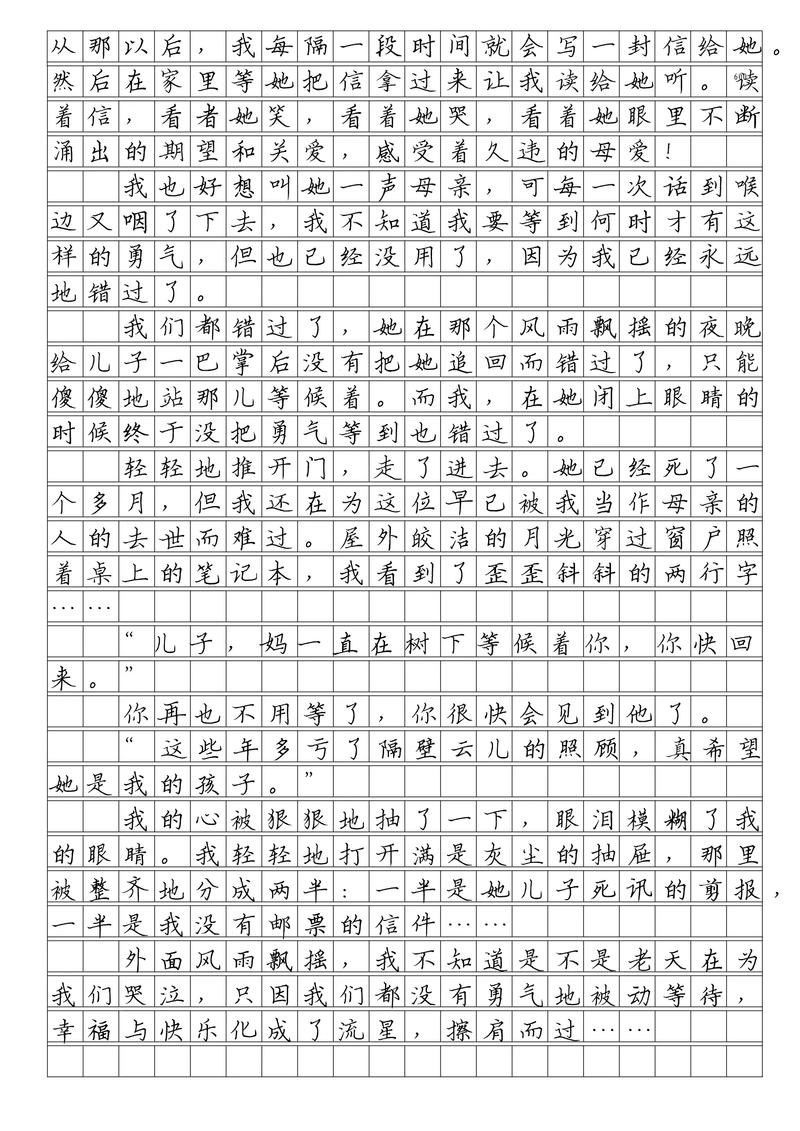 从那以后，我每隔一段时间就会写一封信给她。
然后在家里等她把信拿过来让我读给她听。读
着信，看者她笑，看着她哭，看着她眼里不断
涌出的期望和关爱，感受着久违的母爱！
我也好想叫她一声母亲，可每一次话到喉
边又咽了下去，我不知道我要等到何时才有这
样的勇气，但也已经没用了，因为我已经永远
地错过了。
我们都错过了，她在那个风雨飘摇的夜晚
给儿子一巴掌后没有把她追回而错过了，只能
傻傻地站那儿等候着。而我，在她闭上眼睛的
时候终于没把勇气等到也错过了。
轻轻地推开门，走了进去。她已经死了一
个多月，但我还在为这位早已被我当作母亲的
人的去世而难过。屋外皎洁的月光穿过窗户照
着桌上的笔记本，我看到了歪歪斜斜的两行字
……
“儿子，妈一直在树下等候着你，你快回
来。”
你再也不用等了，你很快会见到他了。
“这些年多亏了隔壁云儿的照顾，真希望
她是我的孩子。”
我的心被狠狠地抽了一下，眼泪模糊了我
的眼睛。我轻轻地打开满是灰尘的抽屉，那里
被整齐地分成两半：一半是她儿子死讯的剪报，
一半是我没有邮票的信件……
外面风雨飘摇，我不知道是不是老天在为
我们哭泣，只因我们都没有勇气地被动等待，
幸福与快乐化成了流星，擦肩而过……